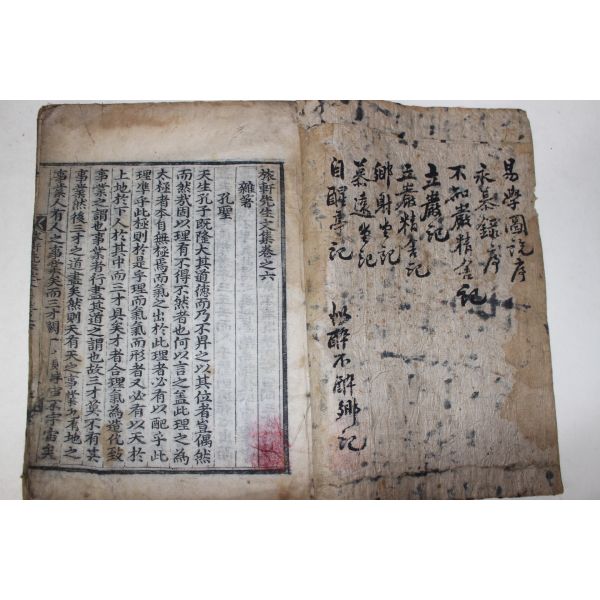 易學圖說序
永慕錄序
不知巖精舍記
立巖記
立巖精舍記
鄉射堂記
慕遠堂記
自醒亭記
似醉不醉鄉記
旅軒先生文集卷之六
雜著
孔聖
天生孔子旣隆大其道德而乃不畀之以其位者豈偶然
而然哉固以理有不得不然者也何以言之盖此理之為
太極者本自無極焉而氣之出於此理者必有以配乎此
理凖乎此極則於是乎理而氣氣而形者又必有以天於
上地於下人於其中而三才具矣才者合理氣為造化致
事業之謂也事業者行盡其道之謂也故三才莫不有其
事業然後三才之道盡矣然則天有天之事業地有地之
事業人有人之事業矣而三才
宇宙矣